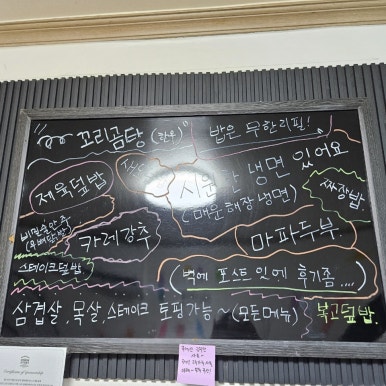 꼬리곰탕 (한우)
밥은 무한리필!
제육덮밥
시원한 냉면 있어요
(매운해장냉면)
짜장밥
카레강추
마파두부
스테이크덮밥
(벽에 포스트잇에 후기좀....)
삼겹살, 목살, 스테이크 토핑가능~(모든메뉴)
불고덮밥.